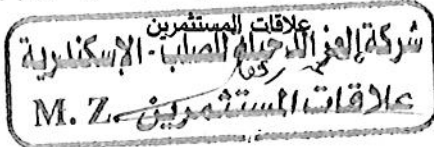 علاقات المستثمرين
شركة العز الدخيلة للصلب - الإسكندرية
علاقات المستثمرين M. Z